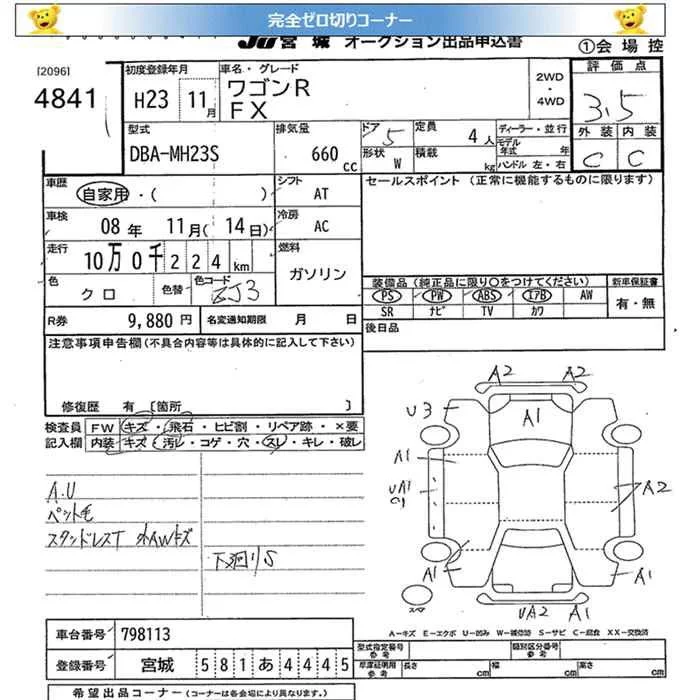 完全ゼロ切りコーナー
JU 宮城 オークション出品申込書 ①会場控
[2096] 4841
初度登録年月 H23 11月
車名・グレード ワゴンR FX
2WD・4WD
評価点 3.5
外装 内装
C C
型式 DBA-MH23S
排気量 660 CC
ドア 5 形状 W
定員 4人 積載 kg
ディーラー・並行
モデル年式 年
ハンドル 左・右
車歴 自家用・( )
シフト AT
セールスポイント (正常に機能するものに限ります)
車検 08年 11月( 14日)
冷房 AC
走行 10万0千224 km
燃料 ガソリン
色 クロ 色替 色コード ZJ3
装備品 (純正品に限り○をつけてください) 新車保証書
PS PW ABS エアB AW 有・無
SR ナビ TV カワ
R券 9,880円 名変通知期限 月 日
後日品
注意事項申告欄(不具合内容等は具体的に記入して下さい)
修復歴 有 [箇所 ]
検査員 FW キズ・飛石・ヒビ割・リペア跡・×要
記入欄 内装 キズ・汚レ・コゲ・穴・スレ・キレ・破レ
A2 A2
U3 A1
A1
UA1 A2
A1 A1
スペア
UA2 A1
A.U
ペット毛
スタンドレスT 外AWキズ
下廻りS
A-キズ E-エクボ U-凹み W-補修跡 S-サビ C-腐食 XX-交換済
車台番号 798113
型式指定番号 参考 類別区分番号 参考
登録番号 宮城 581あ4445
車庫証明用 参考 長さ cm 幅 cm 高さ cm
希望出品コーナー (コーナーは各会場により異なります。)